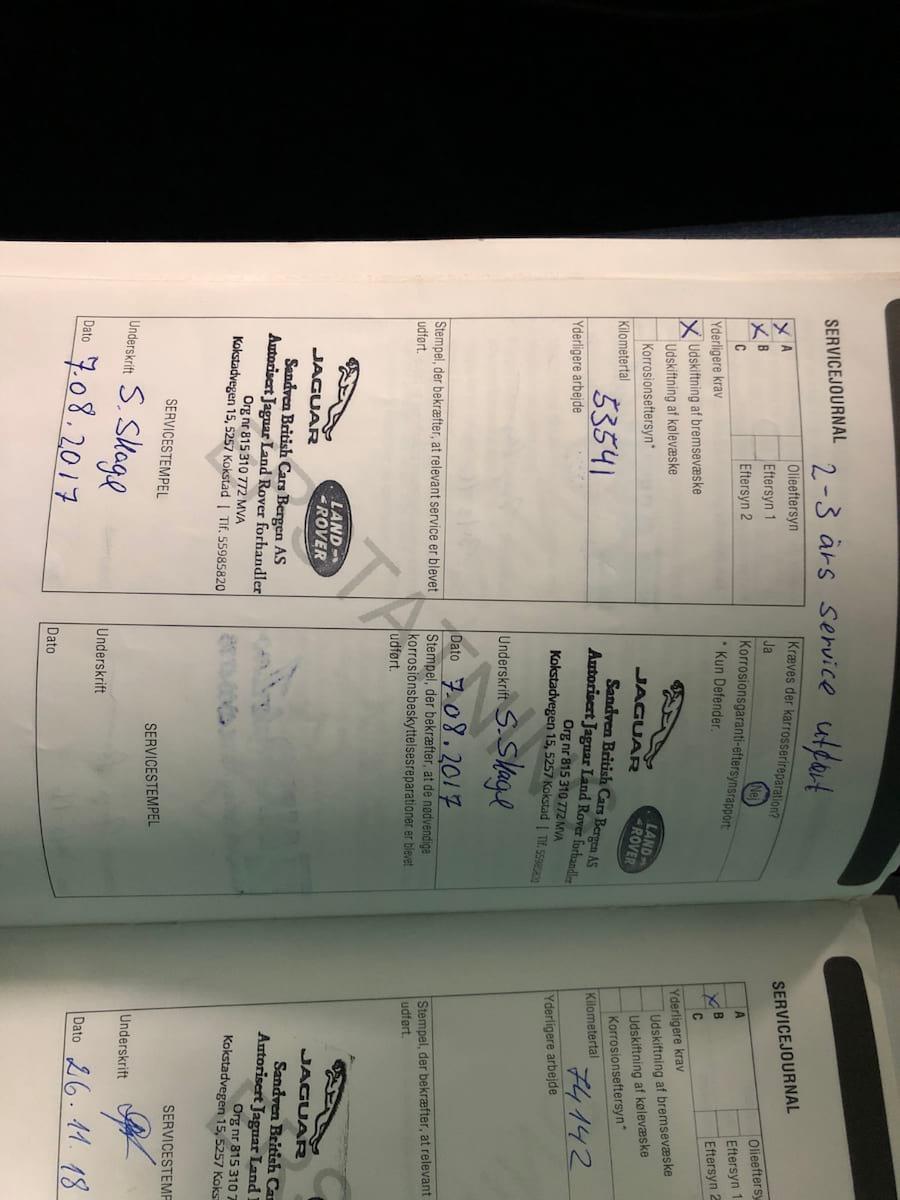 SERVICEJOURNAL 2-3 års service utført
X A Olieeftersyn
X B Eftersyn 1
C Eftersyn 2
Yderligere krav
X Udskiftning af bremsevæske
Udskiftning af kølevæske
Korrosionseftersyn*
Kilometertal 53541
Yderligere arbejde
Stempel, der bekræfter, at relevant service er blevet
udført.
JAGUAR LAND ROVER
Sandven British Cars Bergen AS
Autorisert Jaguar Land Rover forhandler
Org nr 815 310 772 MVA
Kokstadvegen 15, 5257 Kokstad | Tlf. 55985820
SERVICESTEMPEL
Underskrift S. Skage
Dato 7.08.2017
Kræves der karrosserireparation?
Ja Nej
Korrosionsgaranti-eftersynsrapport:
* Kun Defender.
JAGUAR LAND ROVER
Sandven British Cars Bergen AS
Autorisert Jaguar Land Rover forhandler
Org nr 815 310 772 MVA
Kokstadvegen 15, 5257 Kokstad | Tlf. 55985820
Underskrift S. Skage
Dato 7.08.2017
Stempel, der bekræfter, at de nødvendige
korrosionsbeskyttelsesreparationer er blevet
udført.
SERVICESTEMPEL
Underskrift
Dato
ERSTATNING
SERVICEJOURNAL
A Olieeftersy
X B Eftersyn
C Eftersyn 2
Yderligere krav
Udskiftning af bremsevæske
Udskiftning af kølevæske
Korrosionseftersyn*
Kilometertal 74142
Yderligere arbejde
Stempel, der bekræfter, at relevant
udført.
JAGUAR
Sandven British Ca
Autorisert Jaguar Land
Org nr 815 310 7
Kokstadvegen 15, 5257 Kokst
SERVICESTEMP
Underskrift
Dato 26.11.18
ERS